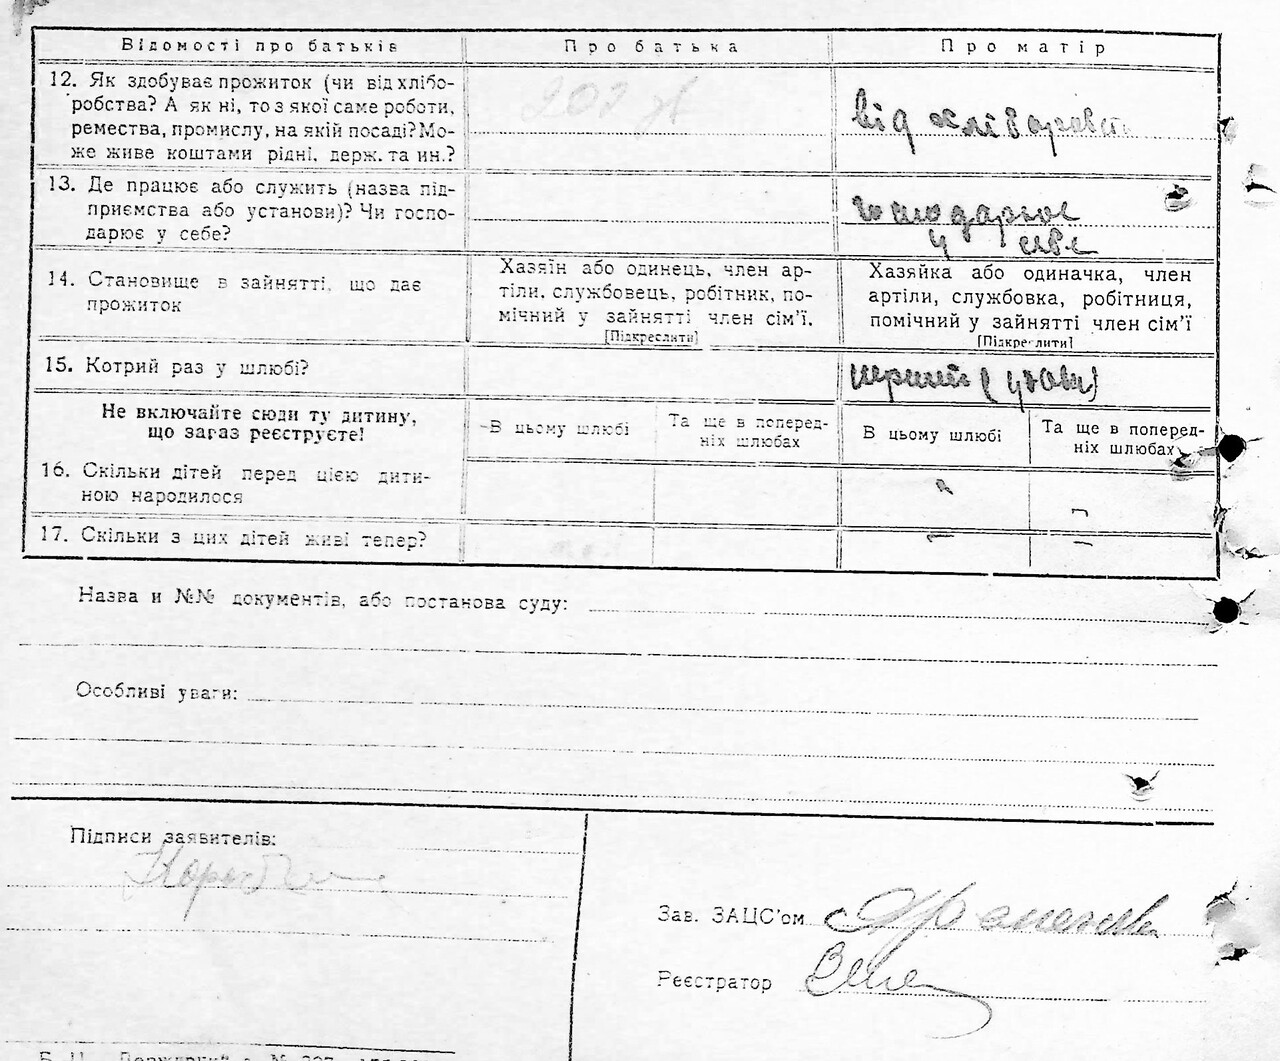 Відомості про батьків
Про батька
Про матір
12. Як здобуває прожиток (чи від хлібо-
робства? А як ні, то з якої саме роботи,
ремества, промислу, на якій посаді? Мо-
же живе коштами рідні, держ. та ин.?
від хліборобств
13. Де працює або служить (назва під-
приємства або установи)? Чи госпо-
дарює у себе?
господарює
у себе
14. Становище в зайнятті, що дає
прожиток
Хазяїн або одинець, член ар-
тіли, службовець, робітник, по-
мічний у зайнятті член сім'ї.
[Підкреслити]
Хазяйка або одиначка, член
артіли, службовка, робітниця,
помічний у зайнятті член сім'ї
[Підкреслити]
15. Котрий раз у шлюбі?
перший (удова)
Не включайте сюди ту дитину,
що зараз реєструєте!
В цьому шлюбі
Та ще в поперед-
ніх шлюбах
В цьому шлюбі
Та ще в поперед-
ніх шлюбах
16. Скільки дітей перед цією дити-
ною народилося
17. Скільки з цих дітей живі тепер?
–
–
Назва и №№ документів, або постанова суду:
Особливі уваги:
Підписи заявителів:
Зав. ЗАЦС'ом
Реєстратор